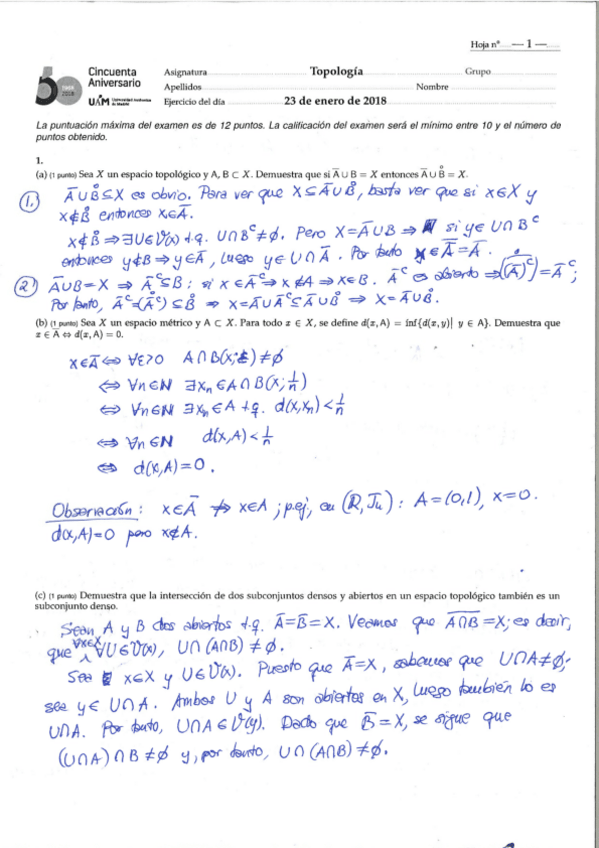 Hoja nº — 1 —
Cincuenta
Aniversario
UAM Universidad Autónoma de Madrid
Asignatura Topología Grupo
Apellidos Nombre
Ejercicio del día 23 de enero de 2018
La puntuación máxima del examen es de 12 puntos. La calificación del examen será el mínimo entre 10 y el número de
puntos obtenido.
1.
(a) (1 punto) Sea X un espacio topológico y A, B ⊂ X. Demuestra que si A̅ ∪ B = X entonces A̅ ∪ B̊ = X.
1. A̅∪B̊ ⊆ X es obvio. Para ver que X ⊆ A̅∪B̊, basta ver que si x∈X y
x∉B̊ entonces x∈A̅.
x∉B̊ ⇒ ∃U∈V(x) t.q. U∩Bᶜ≠∅. Pero X=A̅∪B ⇒ si y∈U∩Bᶜ
entonces y∉B ⇒ y∈A̅, luego y∈U∩A̅. Por tanto x∈A̿=A̅.
2. A̅∪B=X ⇒ A̅ᶜ⊆B: si x∈A̅ᶜ ⇒ x∉A̅ ⇒ x∈B. A̅ᶜ es abierto ⇒ (A̅)ᶜ = A̅ᶜ;
Por tanto, A̅ᶜ=(A̅ᶜ)˚ ⊆ B̊ ⇒ X=A̅∪A̅ᶜ⊆A̅∪B̊ ⇒ X=A̅∪B̊.
(b) (1 punto) Sea X un espacio métrico y A ⊂ X. Para todo x ∈ X, se define d(x, A) = ínf{d(x, y)| y ∈ A}. Demuestra que
x ∈ A̅ ⇔ d(x, A) = 0.
x∈A̅ ⇔ ∀ε>0 A∩B(x;ε)≠∅
⇔ ∀n∈N ∃xₙ∈A∩B(x;1/n)
⇔ ∀n∈N ∃xₙ∈A t.q. d(x,xₙ)<1/n
⇔ ∀n∈N d(x,A)<1/n
⇔ d(x,A)=0.
Observación: x∈A̅ ⇏ x∈A; p.ej, en (R,Tu): A=(0,1), x=0.
d(x,A)=0 pero x∉A.
(c) (1 punto) Demuestra que la intersección de dos subconjuntos densos y abiertos en un espacio topológico también es un
subconjunto denso.
Sean A y B dos abiertos t.q. A̅=B̅=X. Veamos que A∩B̅=X; es decir,
que ∀x∈X ∀U∈V(x), U∩(A∩B)≠∅.
Sea x∈X y U∈V(x). Puesto que A̅=X, sabemos que U∩A≠∅;
sea y∈U∩A. Ambos U y A son abiertos en X, luego también lo es
U∩A. Por tanto, U∩A∈V(y). Dado que B̅=X, se sigue que
(U∩A)∩B≠∅ y, por tanto, U∩(A∩B)≠∅.